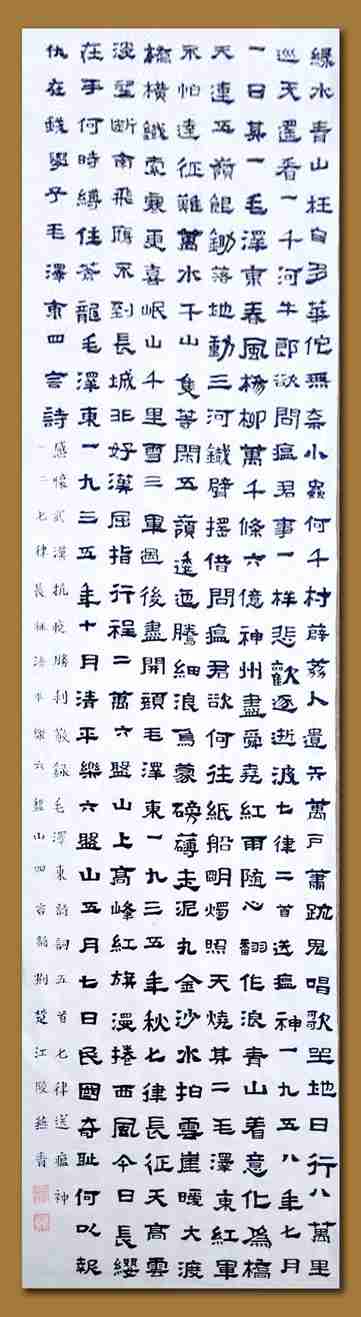 綠水青山枉自多華佗無奈小蟲何千村薜荔人遺矢萬戶蕭疏鬼唱歌坐地日行八萬里
巡天遙看一千河牛郎欲問瘟君事一樣悲歡逐逝波七律二首送瘟神一九五八年七月
一日其一毛澤東春風楊柳萬千條六億神州盡舜堯紅雨隨心翻作浪青山着意化為橋
天連五嶺銀鋤落地動三河鐵臂搖借問瘟君欲何往紙船明燭照天燒其二毛澤東紅軍
不怕遠征難萬水千山隻等閑五嶺逶迤騰細浪烏蒙磅礴走泥丸金沙水拍雲崖暖大渡
橋橫鐵索寒更喜岷山千里雪三軍過後盡開顏毛澤東一九三五年秋七律長征天高雲
淡望斷南飛雁不到長城非好漢屈指行程二萬六盤山上高峰紅旗漫捲西風今日長纓
在手何時縛住蒼龍毛澤東一九三五年十月清平樂六盤山五月七日民國奇恥何以報
仇在我學子毛澤東四言詩
感懷武漢抗疫勝利敬錄毛澤東詩詞五首七律送瘟神
一二七律長征清平樂六盤山四言詩荊楚江陵燕青